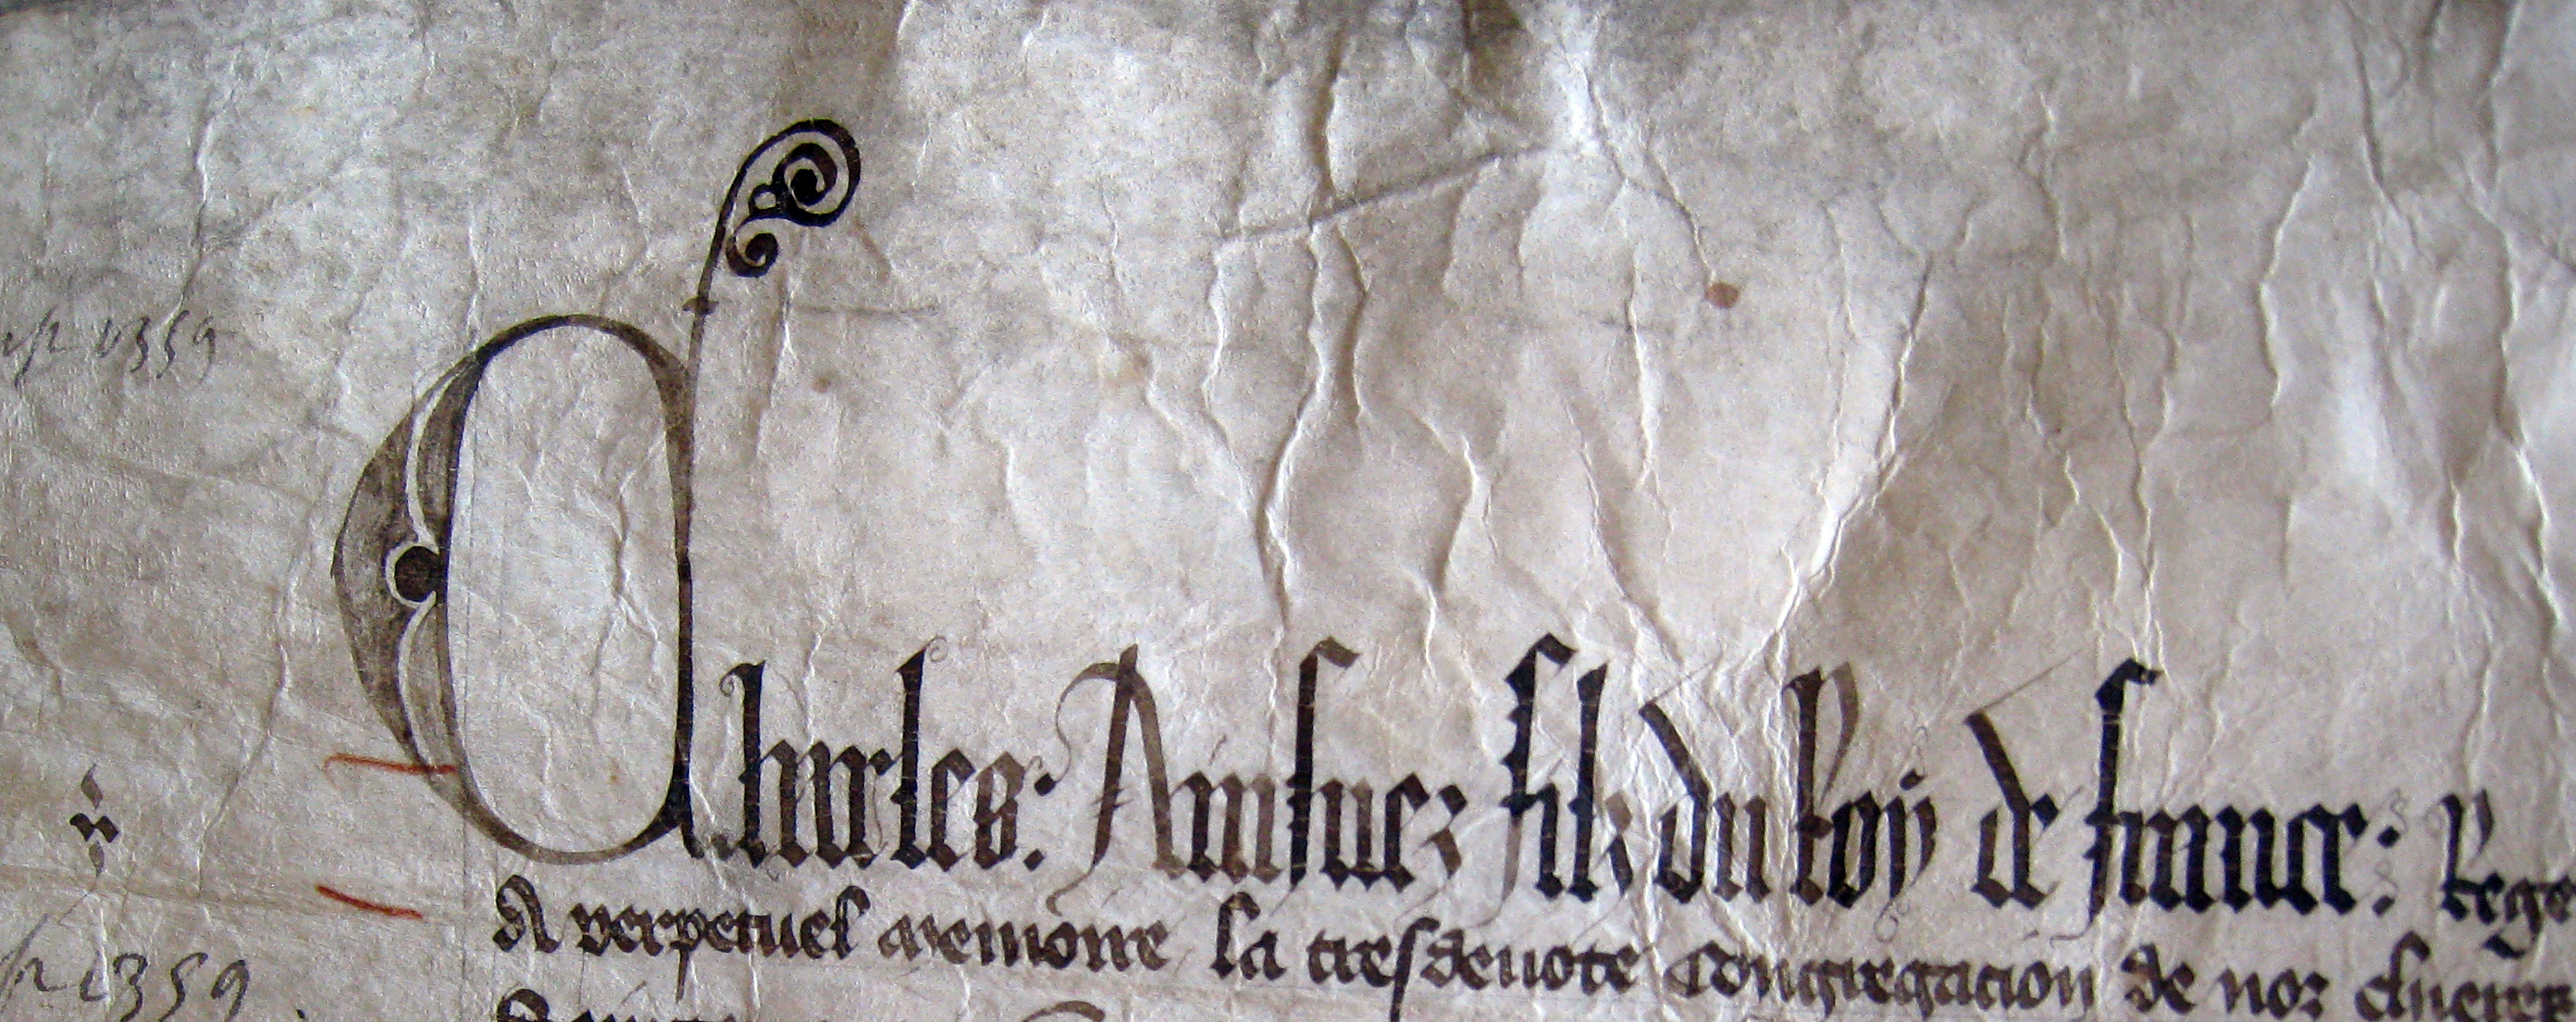 1359
Charles: Ainsnez filz du Roy de france: Rege
A perpetuel memoire la tresdeuote congregacion de noz
1359